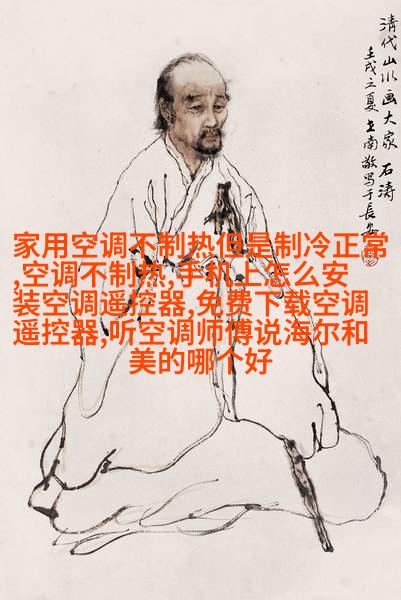 清代山水画大家 石涛
壬戌之夏 王南敬写于長安
家用空调不制热但是制冷正常
,空调不制热,手机上怎么安
装空调遥控器,免费下载空调
遥控器,听空调师傅说海尔和
美的哪个好